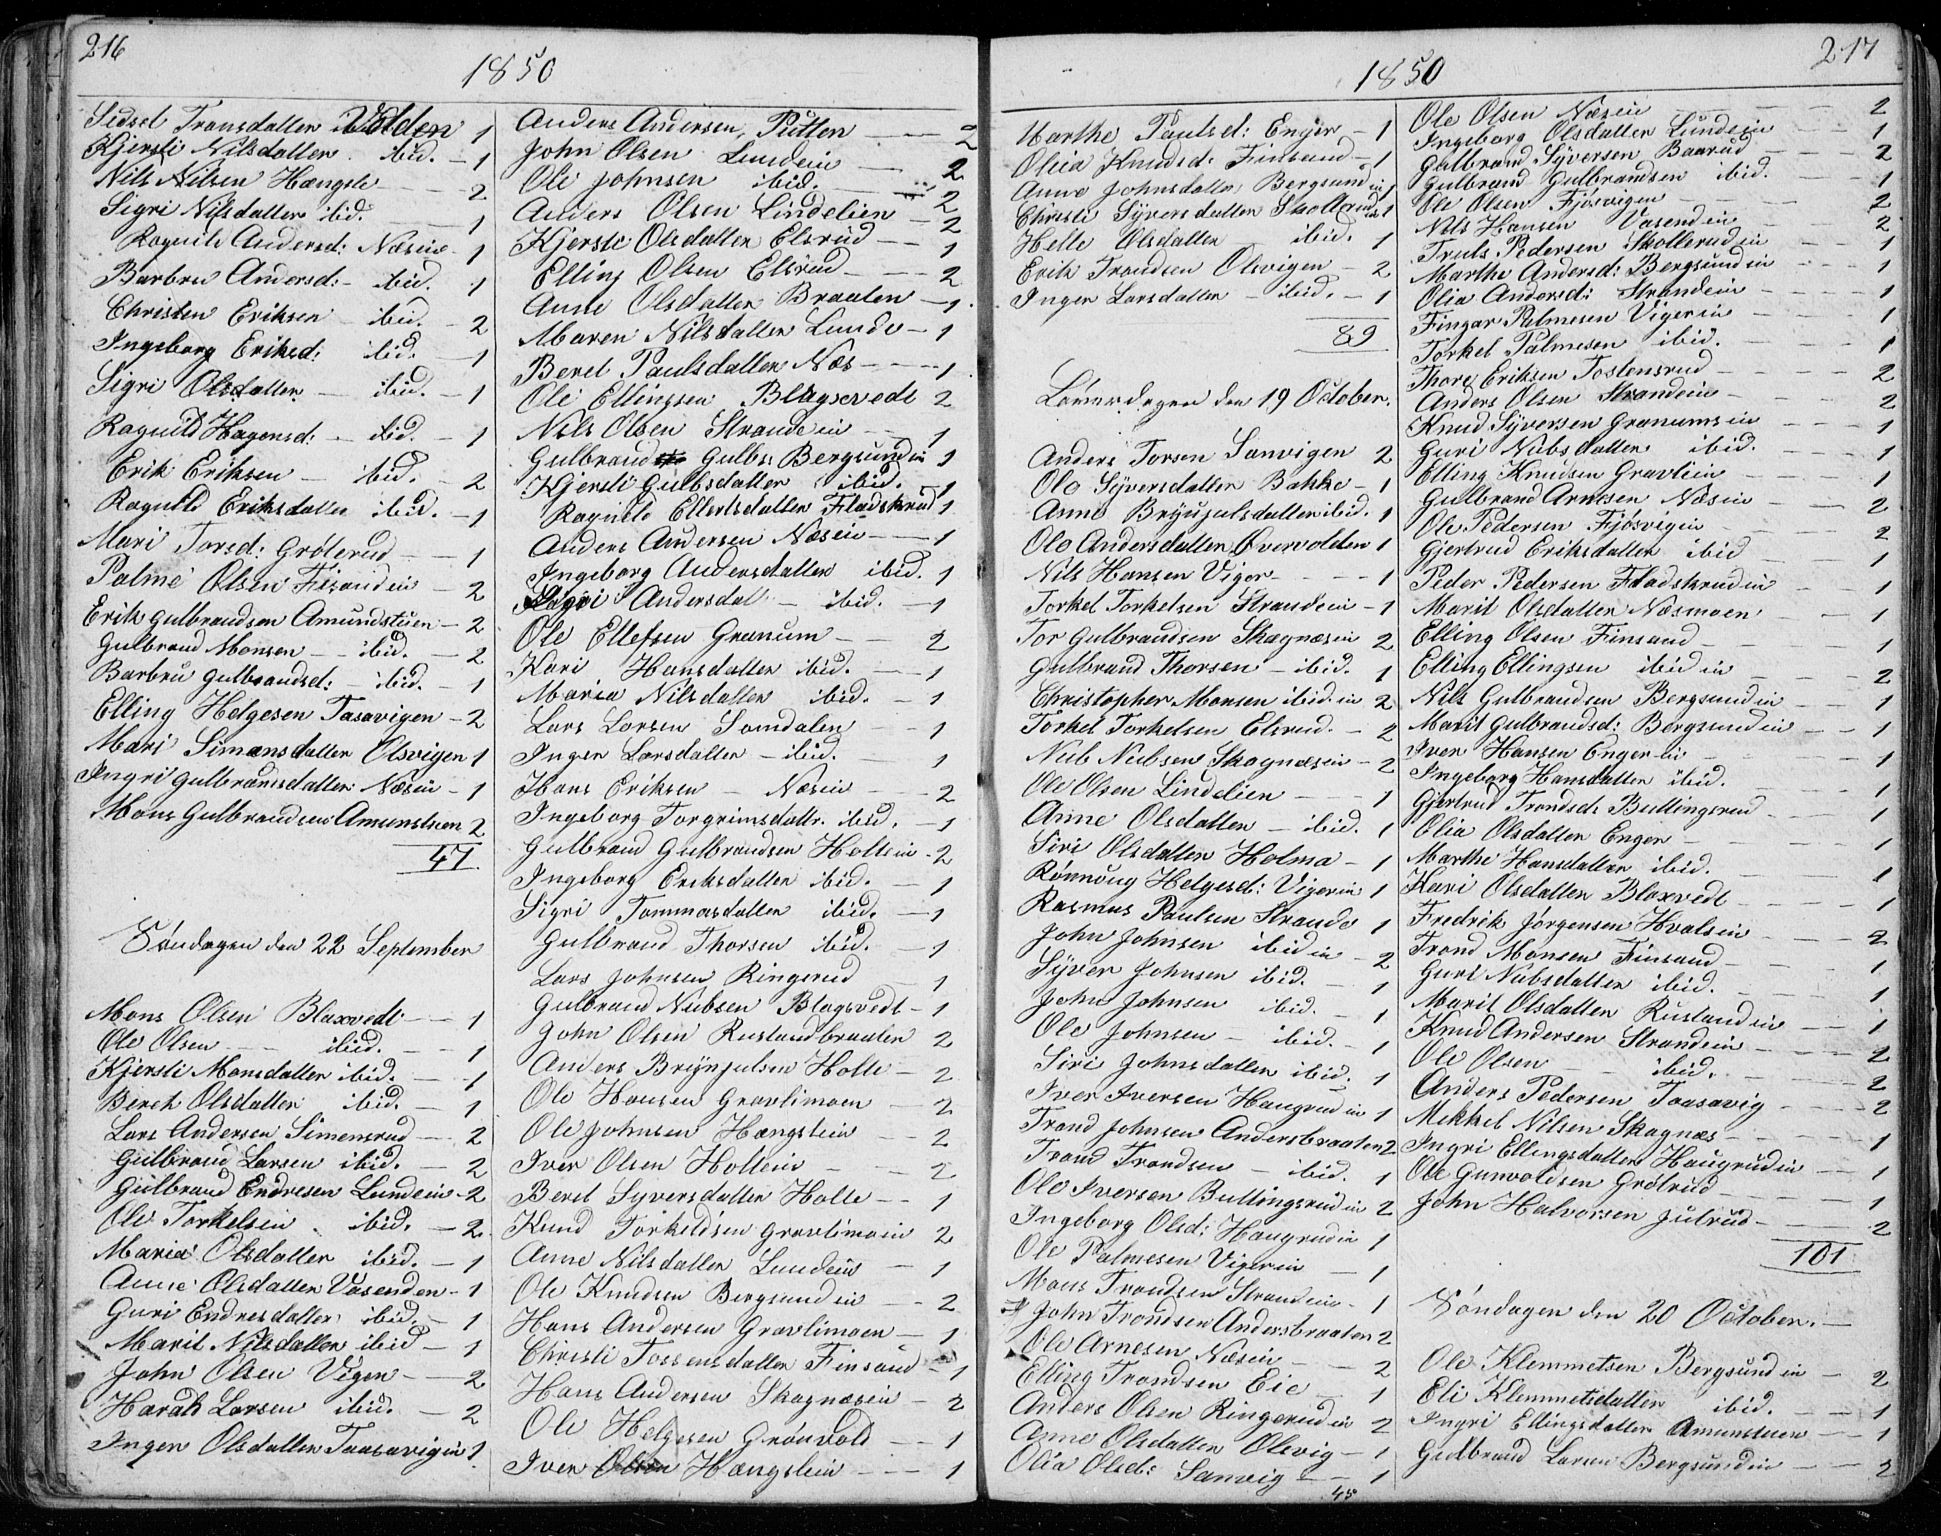 216
1850
Sidsel Transdatter Volden 1
Kjersti Nilsdatter ibid. - 1
Nils Nilsen Hængsle - - 2
Sigri Nilsdatter ibid. - 1
Ragnild Andersd: Næsein - 1
Barbru Andersd: - ibid. 1
Christen Eriksen - ibid. - 2
Ingeborg Eriksd: ibid. - 1
Sigri Olsdatter - ibid. - 1
Ragnild Hagensd: - ibid. - 1
Erik Eriksen - ibid. - 2
Ragnild Eriksdatter ibid. - 1
Mari Torsd: Grøterud - - 1
Palme Olsen - 2
Erik Gulbrandsen Amundstuen - 2
Gulbrand Monsen - - ibid. - 2
Barbru Gulbrandsd: - ibid. - 1
Elling Helgesen Tasavigen - 2
Mari Simensdatter Olsvigen 1
Ingri Gulbransdatter Næsein - 1
Mons Gulbrandsen Amunstuen 2
47
Søndagen den 22 September
Mons Olsen Blaxvedt - - 1
Ole Olsen - - ibid. - - 1
Kjersti Monsdatter ibid. - 1
Bereth Olsdatter ibid. - 1
Lars Andersen Simensrud - 2
Gulbrand Larsen ibid. - 2
Gulbrand Endresen Lundein - 2
Ole Torkelsen ibid. - 2
Maria Olsdatter ibid. - 1
Anne Olsdatter Vasenden - 1
Guri Endresdatter ibid. - 1
Marit Nilsdatter ibid - 1
John Olsen Viger - - 2
Harald Larsen ibid. - 2
Inger Olsdatter Taasavigein 1
Anders Andersen, Putten - - 2
John Olsen Lundein - 2
Ole Johnsen ibid. - 2
Anders Olsen Lindelien - 2
Kjersti Olsdatter Elsrud - - 1
Elling Olsen Elsrud - - - 2
Anne Olsdatter Braaten - 1
Maren Nilsdatter Lunde - 1
Beret Paulsdatter Næs - - - 1
Ole Ellingsen Blagsvedt 2
Nils Olsen Strandein - - 1
Gulbrand Gulbs: Bergsundin 1
Kjersti Gulbsdatter ibid. - 1
Ragnild Ellertsdatter Fladskrud 1
Anders Andersen Næsein - - 1
Ingeborg Andersdatter ibid. 1
Sigri Andersdat - ibid. - 1
Ole Ellefsen Granum - - 2
Kari Hansdatter ibid. - 1
Maria Nilsdatter ibid. - 1
Lars Larsen Somdalen - - 1
Inger Larsdatter - ibid. 1
Hans Eriksen - Næsein - - 2
Ingeborg Torgrimsdattr. ibid. - 1
Gulbrand Gulbrandsen Holtein - 2
Ingeborg Eriksdatter ibid. - 1
Sigri Tommasdatter ibid. - 1
Gulbrand Thorsen ibid. - 1
Lars Johnsen Ringerud - 1
Gulbrand Nubsen Blagsvedt - 1
John Olsen Ruslandbraaten 2
Anders Brynjulsen Holte - 2
Ole Hansen Gravlimoen - 2
Ole Johnsen Hængslein - 2
Iver Olsen Holtein - - - 2
Beret Syversdatter Holte - - 1
Knud Torkeldsen Gravlimoin 2
Anne Nilsdatter Lundein - 1
Ole Knudsen Bergsundein - - 2
Hans Andersen Gravlimoen - 1
Christi Tossensdatter Finsand - 1
Hans Andersen Skagnæsein - 2
Ole Helgesen Grønvold - - 1
Iver Olsen Hængslein - - - 1
217
1850
Marthe Paulsd: Enger - 1
Olia Knudsd: Finsand - 1
Anne Johnsdatter Bergsundin 1
Christi Syversdatter 1
Helle Olsdatter - ibid. 1
Erik Trondsen Olsvigen - 2
Inger Larsdatter - ibid. - 1
89
Løverdagen den 19 October.
Anders Torsen Sanvigen 2
Ole Syversdatter Bakke - 1
Anne Brynjulsdatter ibid. 1
Ole Andersdatter Øvervolden 1
Nils Hansen Viger - - - - 1
Torkel Torkelsen Strandein - 1
Tor Gulbrandsen Skagnæsin 2
Gulbrand Thorsen - ibid. 1
Christopher Monsen ibid. in 2
Torkel Torkelsen Elsrud. - 2
Nub Nubsen Skagnæsin - 2
Ole Olsen Lindelien - - 1
Anne Olsdatter - ibid. 1
Siri Olsdatter Holma - 1
Rønnoug Helgesd: Vigerin 1
Rasmus Paulsen Strande 1
John Johnsen ibid in - 2
Syver Johnsen ibid. - 1
John Johnsen ibid. - 1
Ole Johnsen - ibid. - 1
Siri Johnsdatter ibid. 1
Iver Iversen Haugrudin 1
Trond Johnsen Andersbraaten 2
Trond Trondsen - ibid. 1
Ole Iversen Bullingsrudin 2
Ingeborg Olsd: Haugrudin 1
Ole Palmesen Vigerin - 1
Mons Trondsen Strandein - 1
John Trondsen Andersbraaten 2
Ole Arnesen Næsein - - 2
Elling Trondsen Eie - 1
Anders Olsen Ringerudin 2
Anne Olsdatter Olsvig - 1
Olia Olsd: Sanvig - - 1
45
Ole Olsen Næsein - - - 2
Ingeborg Olsdatter Lundein - 1
Gulbrand Syversen Baarud - - 2
Gulbrand Gulbrandsen ibid. - 1
Ole Olsen Fjøsvigen - - - 2
Nils Hansen Vasendin - - - 2
Truls Pedersen Skollerudin - - 1
Marthe Andersd: Bergsundin - - 1
Olia Andersd: Strandein - - - 1
Fingar Palmesen Vigerin - - 1
Torkel Palmesen ibid. - - 1
Thore Eriksen Tostensrud - - - 2
Anders Olsen Strandein - - - 2
Knud Syversen Granumsin - - 1
Guri Nubsdatter ibid. - - 1
Elling Knudsen Gravliin - - 1
Gulbrand Arnesen Næsin - - - 2
Ole Pedersen Fjøsvigin - - - 2
Gjertrud Eriksdatter ibid - - 1
Peder Pedersen Fladskrudin - - 1
Marit Olsdatter Næsmoen - - 1
Elling Olsen Finsand - - - 1
Elling Ellingsen ibid in - - 2
Nils Gulbrandsen Bergsundin - - 1
Marit Gulbrandsd: Bergsundin - - 1
Iver Hansen Enger-in - - 1
Ingeborg Hansdatter ibid. - - 1
Gjertrud Trondsd: Bullingsrud - - 1
Olia Olsdatter Enger - - - 1
Marthe Hansdatter ibid. - - 1
Kari Olsdatter Blaxvedt - - - 1
Fredrik Jørgensen Hvalsin - - - 2
Trond Monsen Finsand - - - 1
Guri Nubsdatter ibid. - - 1
Marit Olsdatter Ruslandin - - 1
Knud Andersen Strandein - - - 2
Ole Olsen - - ibid. - - 2
Anders Pedersen Taasavig - - - 2
Mekkel Nilsen Skagnæs - - - 1
Ingri Ellingsdatter Haugrudin - - 1
Ole Gunvoldsen Grøtrud - - - 1
John Halvorsen Julrud - - - 2
101
Søndagen den 20 October. -
Ole Klemmetsen Bergsundin - 2
Eli Klemmetsdatter ibid. - - 1
Ingri Ellingsdatter Amunstuen - - 1
Gulbrand Larsen Bergsundin - - 2